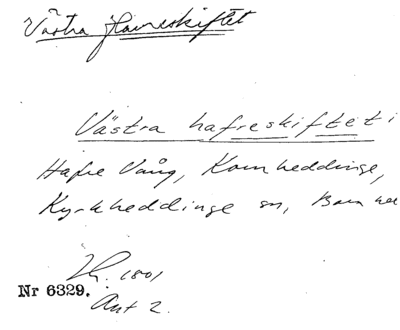 Västra Havreskiftet
Västra hafreskiftet i
Hafre Vång, Kornheddinge,
Kyrkheddinge sn, Bara hd
1801
Nr 6329.
Akt 2.